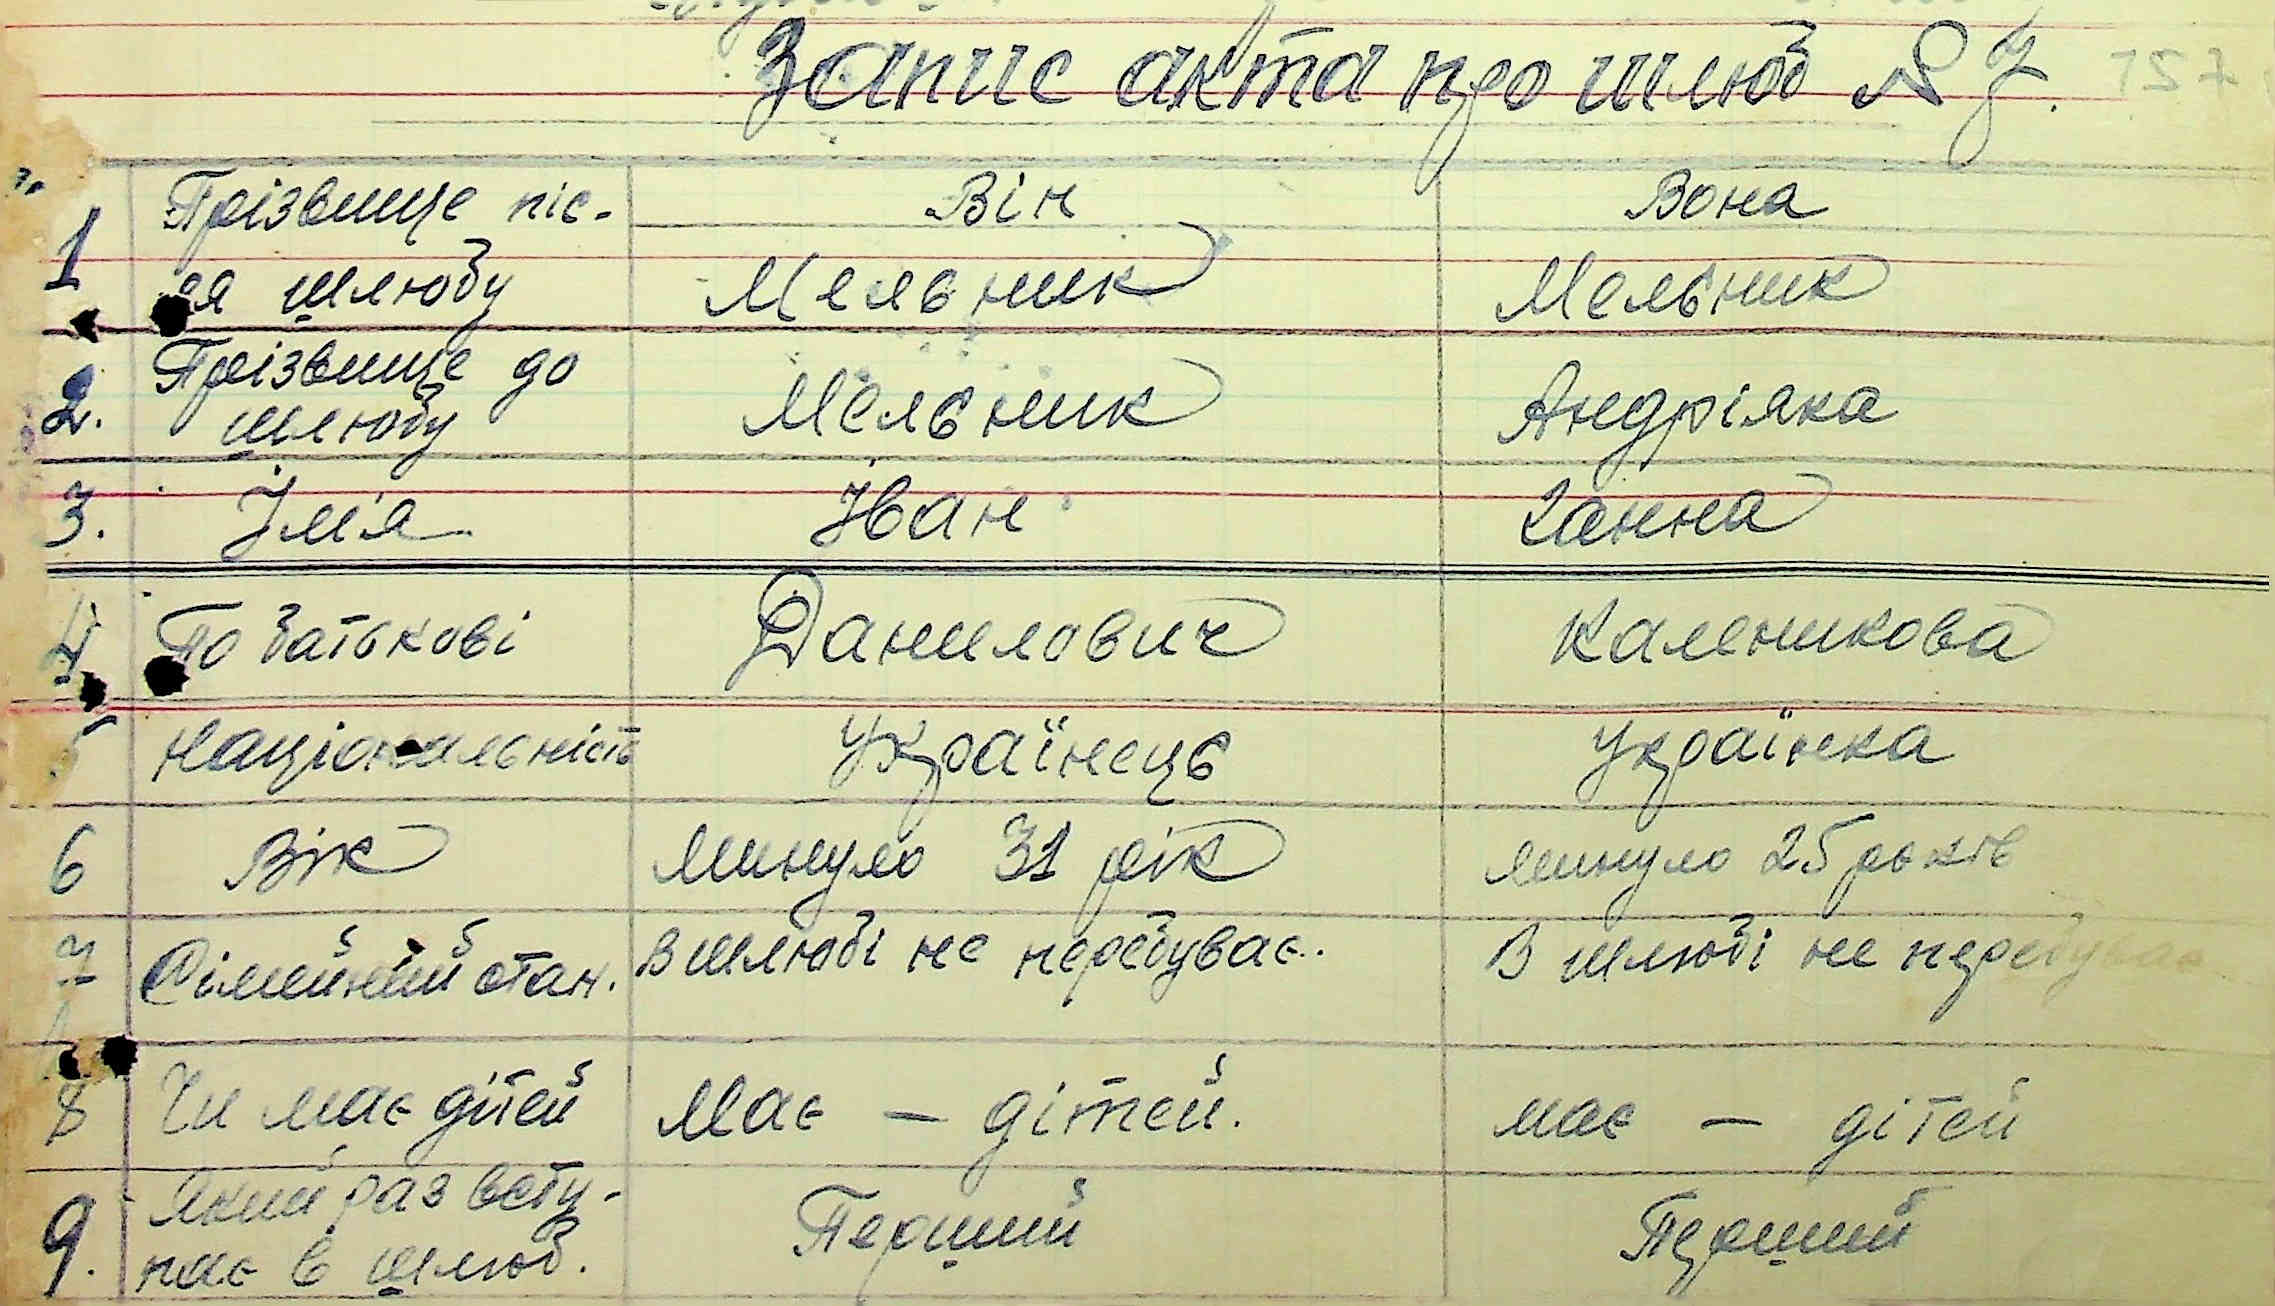 Запис акта про шлюб № 7.
157
Він Вона
1 Прізвище піс-
ля шлюбу Мельник Мельник
2. Прізвище до
шлюбу Мельник Андріяка
3. Їм'я Іван Ганна
4 По батькові Данилович Каленикова
5 Національність Українець Українка
6 Вік минуло 31 рік минуло 25 років
7 Сімейний стан. В шлюбі не перебуває.. В шлюбі не перебуває
8 Чи має дітей Має — дітей. має — дітей
9. Який раз всту-
пає в шлюб. Перший Перший